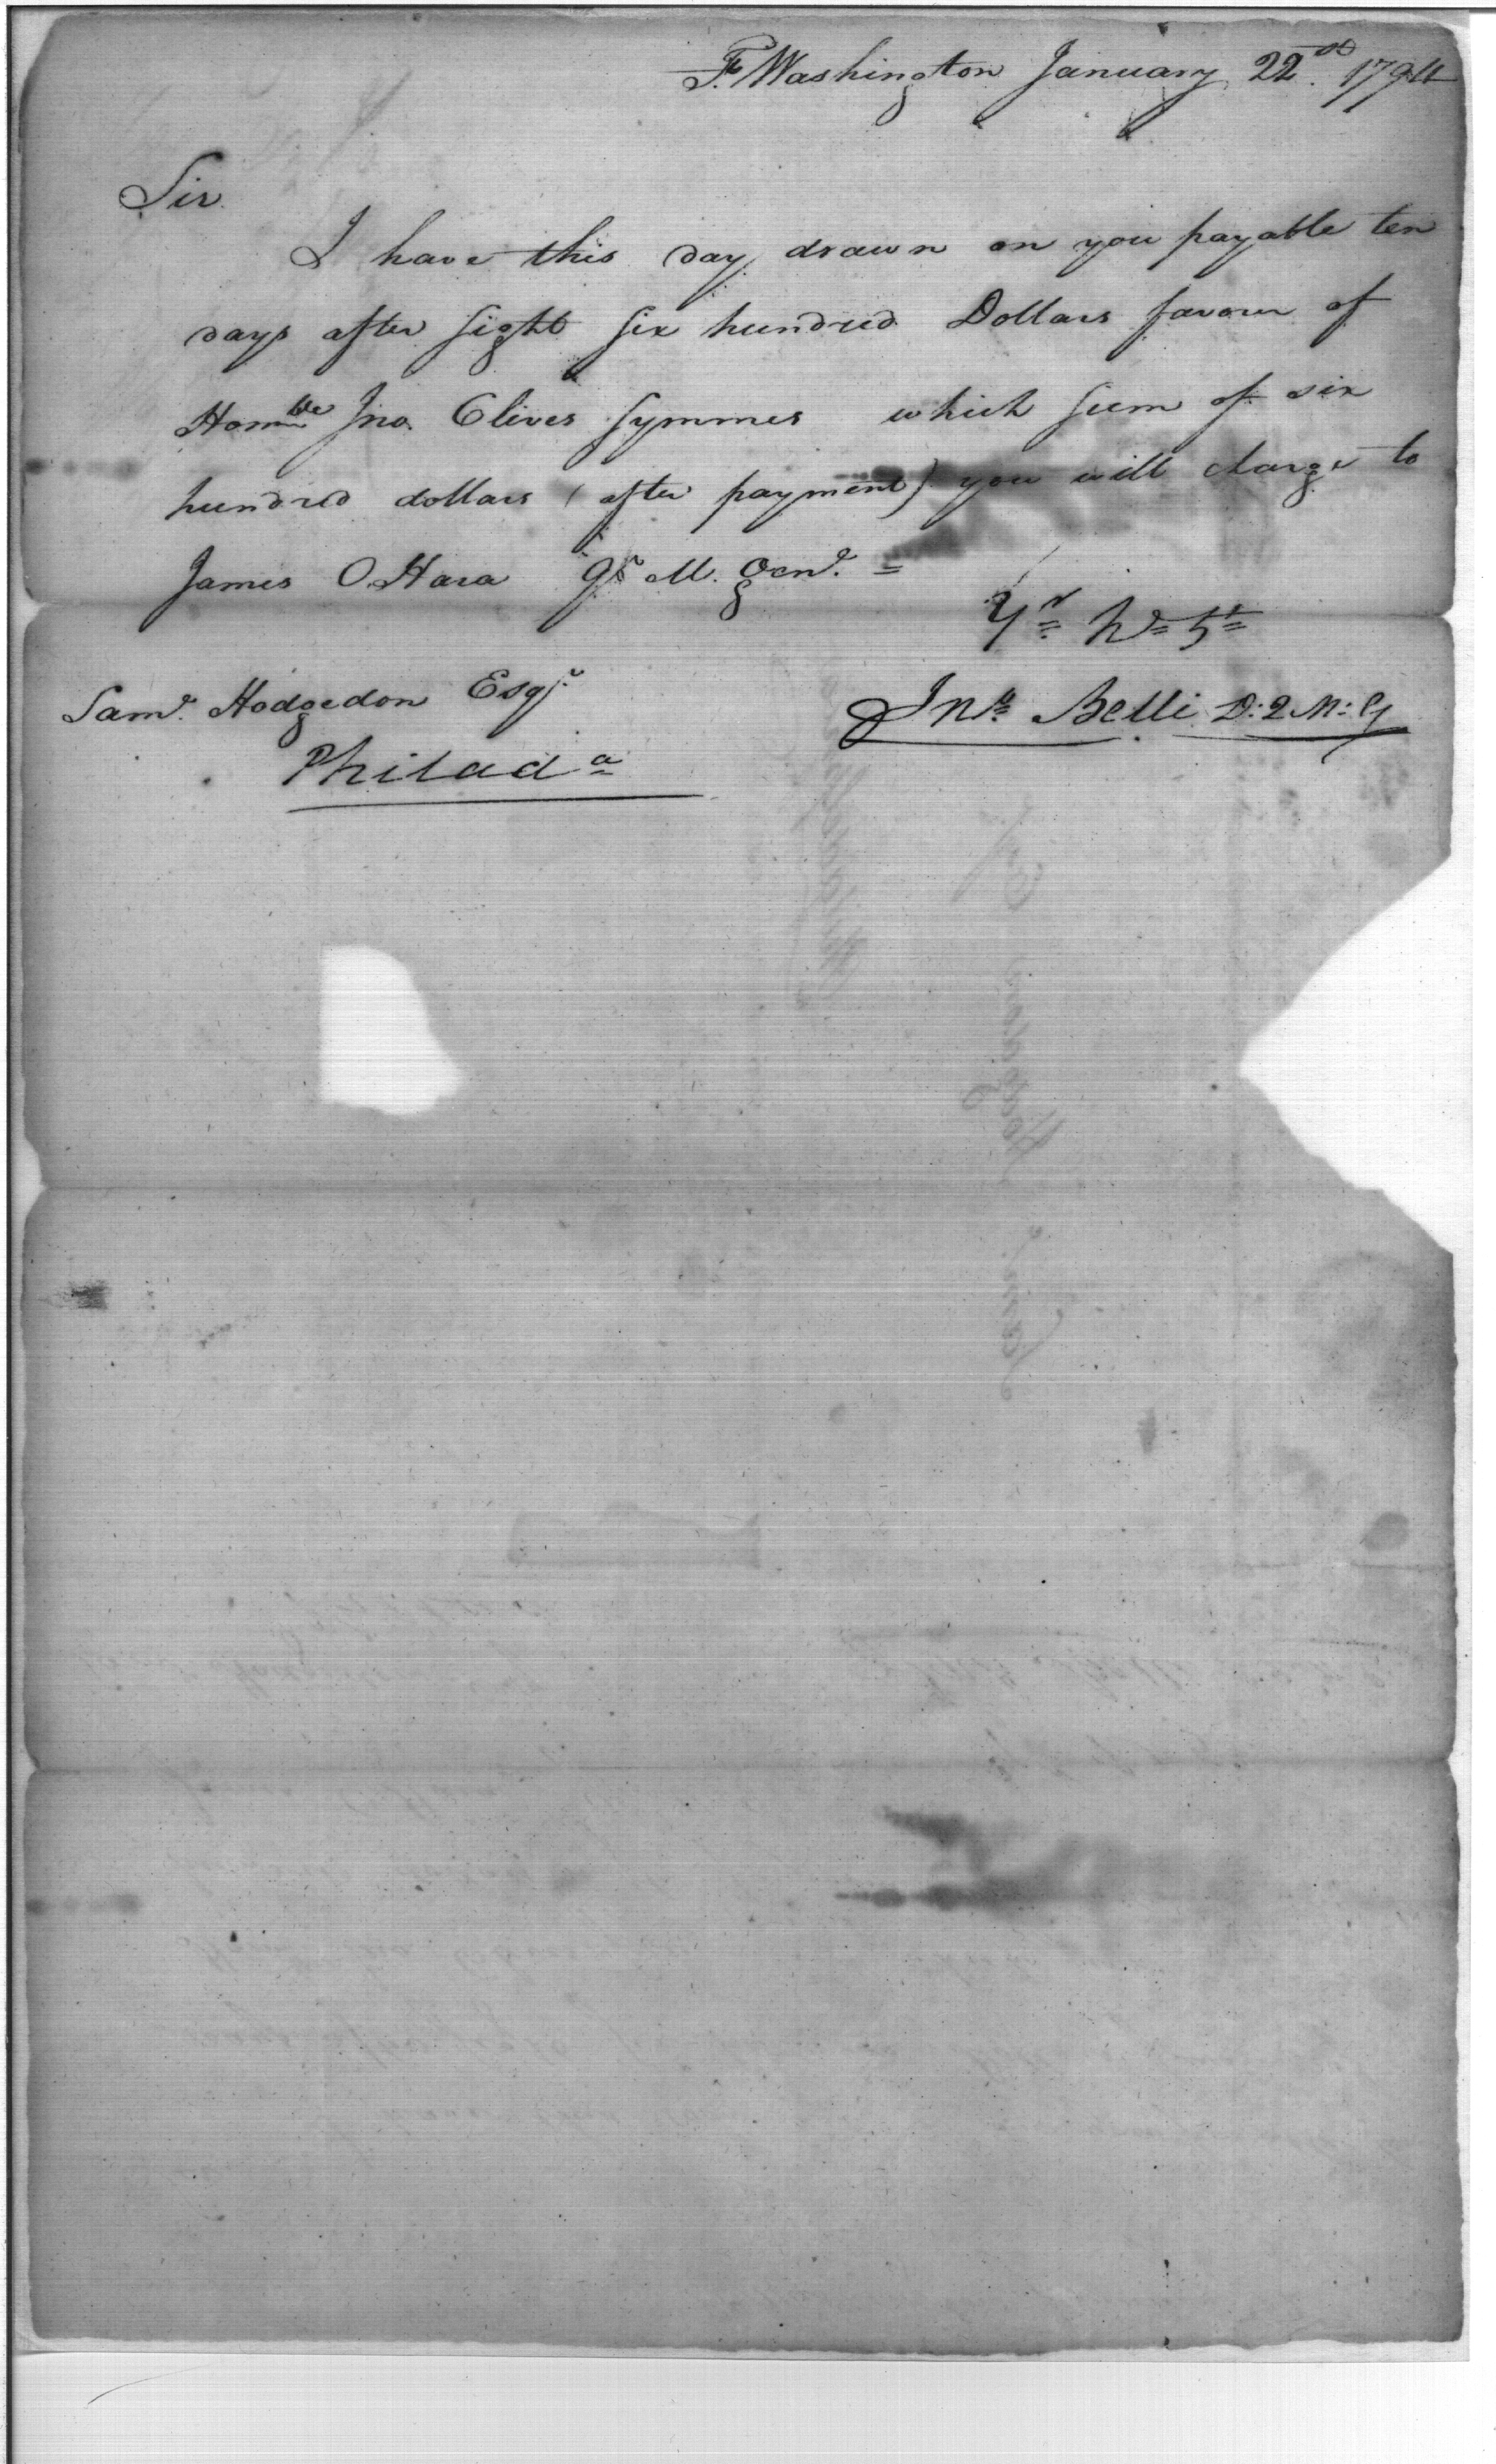 Ft. Washington January 22nd. 1794
Sir
I have this day drawn on you payable ten
days after sight six hundred Dollars favour of
Honble Jno. Cleves Symmes which sum of six
hundred dollars (after payment) you will charge to
James OHara Qr. M. Genl. =
Yr Hle St
Saml. Hodgedon Esqr.
Jno Belli D: Q M: G
Philada